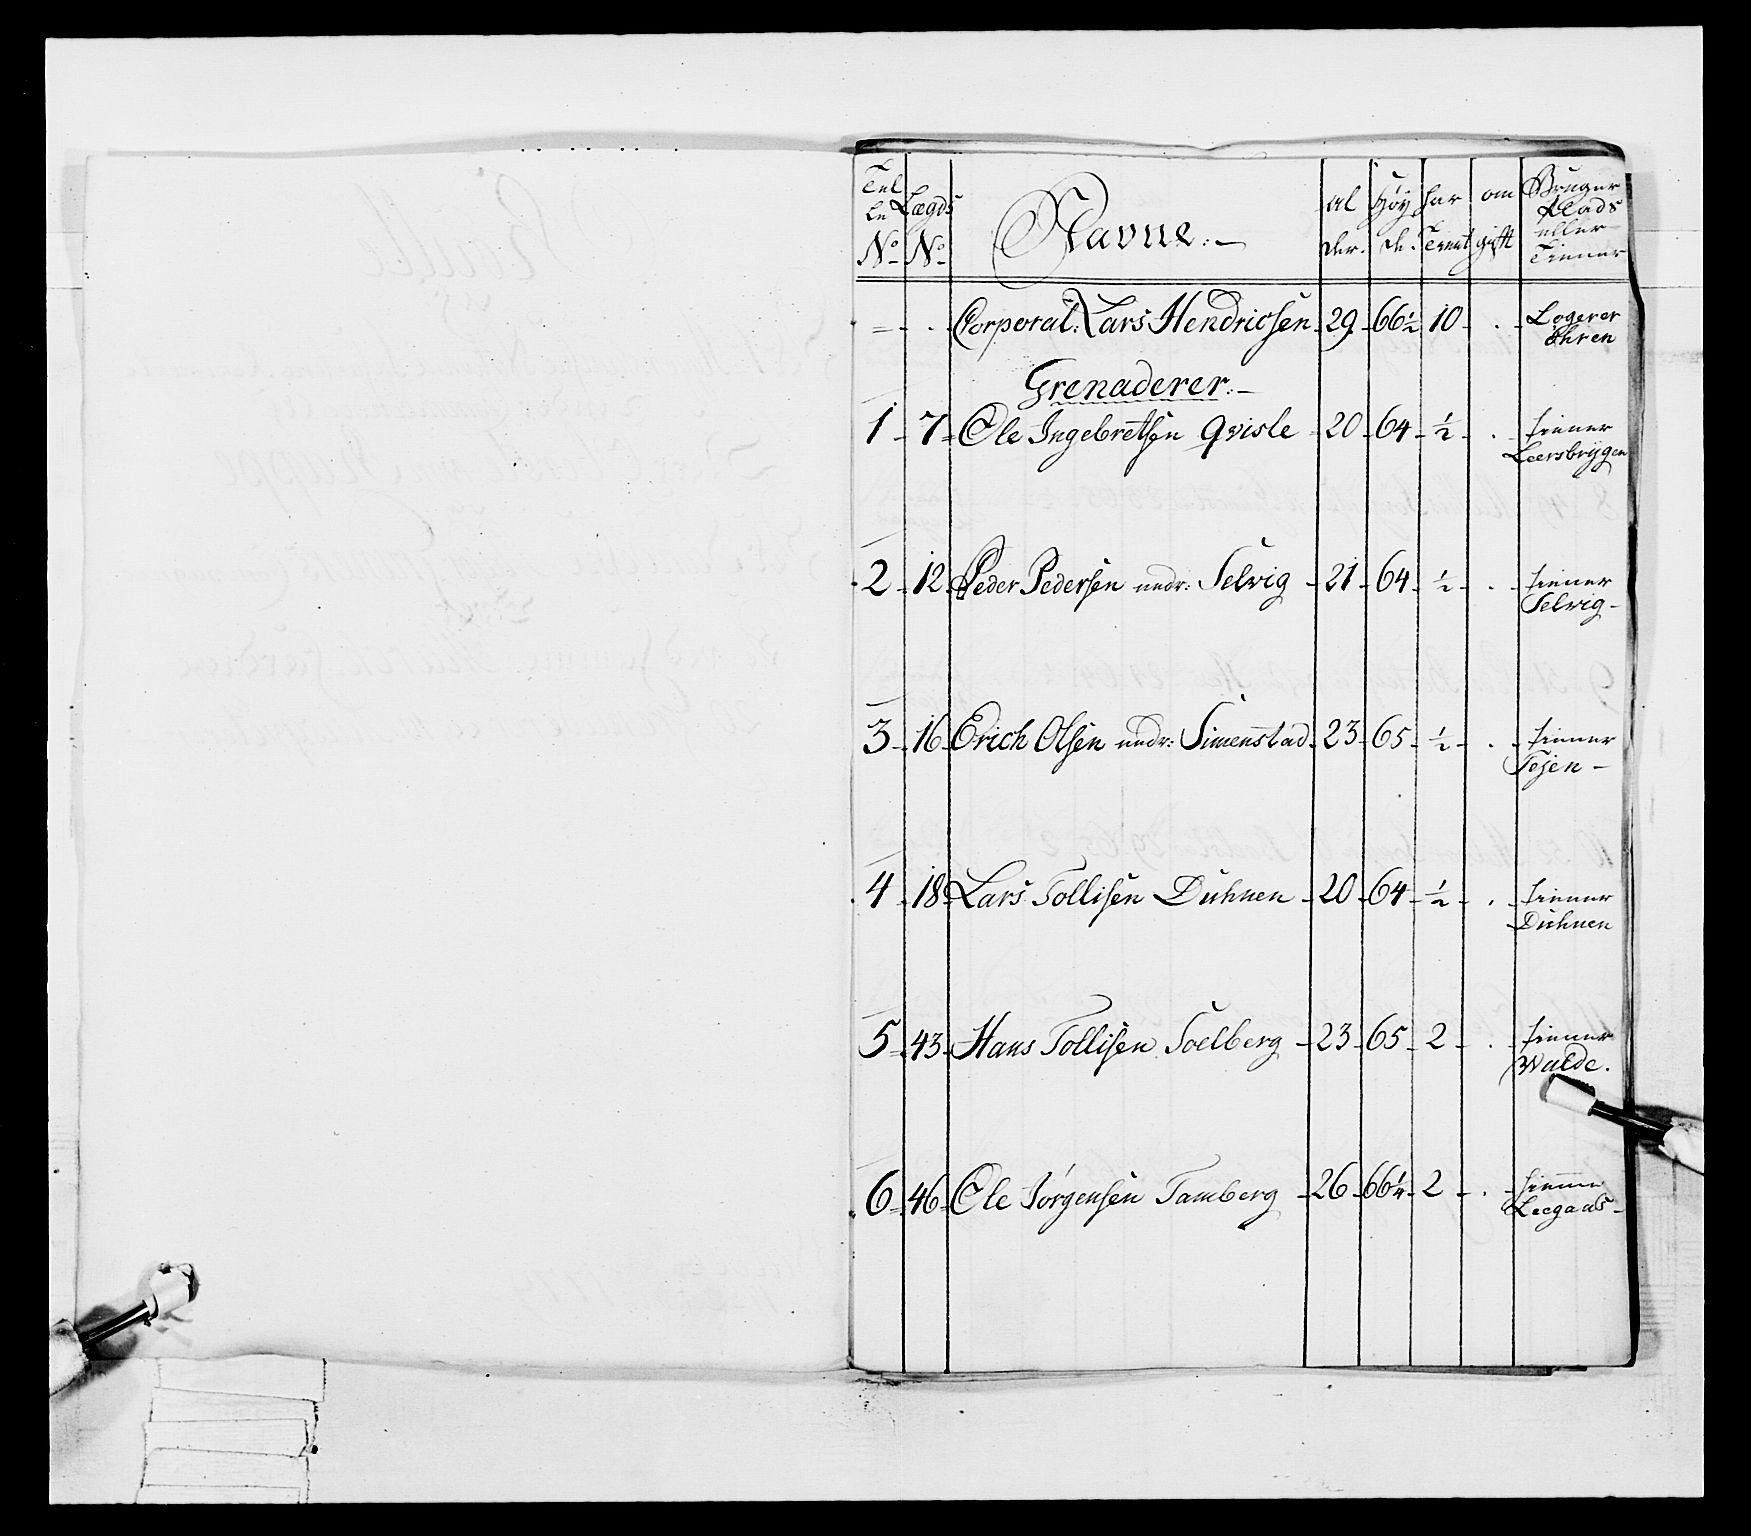 Tel Lægds al Høy har om Bruger
le Plads
No No Navne.— der. de. Tient gift eller
Tienner
— . Corporal: Lars Hendricsen 29 66½ 10 . Logerer
Ohren
Grenaderer:—
1 7 Ole Ingebretsen Qvisle 20 64 ½ . tienner
Leersbrygen
2 12 Peder Pedersen nedr: Selvig 21 64 ½ . tienner
Selvig
3 16 Erich Olsen nedr: Simenstad 23 65 ½ . tienner
Tejen
4 18 Lars Tollisen Duhnen 20 64 ½ . tienner
Duhnen
5 43 Hans Tollisen Soelberg 23 65 2 . tienner
Walde.
6 46 Ole Jörgensen Tamberg 26 66¼ 2 . tienner
Leegaas